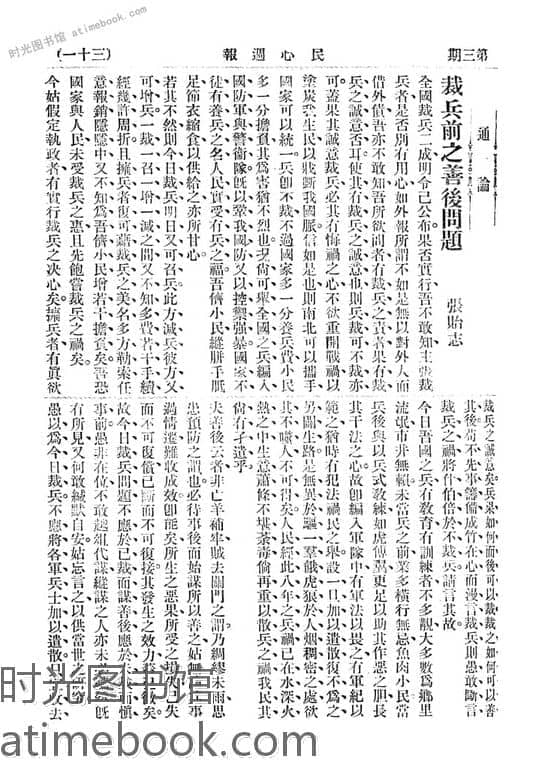 时光图书馆 - atimebook.com
第三期
民心週報
(三十一)
通論
裁兵前之善後問題
張貽志
全國裁兵二成明令已公布果否實行吾不敢知主張裁
兵者是否別有用心如外報所謂不如是無以對外人而
借外債吾亦不敢知吾所欲問者有裁兵之責者果有裁
兵之誠意否耳使其有裁兵之誠意也則兵可不裁亦
可蓋果其誠意裁兵必其有悔禍之心不欲重開戰禍以
塗炭我生民以戕斷我國脈信如是也則南北可以攜手
國家可以統一兵卽不裁不過國家多一分養兵費小民
多一分擔負其爲害猶不烈也況尙可舉全國之兵編入
國防軍與警衞隊旣以鞏我國防又以控禦强暴國家不
徒有養兵之名人民實受有兵之福吾儕小民縱胼手胝
足節衣縮食以供給之亦所甘心
若其不然則今日裁兵明日又可召兵此方減兵彼方又
可增兵一裁一召一增一減之間又不知多費若干手續
經幾許周折且擁兵者復可藉裁兵之美名多方勒索任
意報銷隱隱中又不知爲吾儕小民增若干擔負矣吾恐
國家與人民未受裁兵之惠且先飽嘗裁兵之禍矣
今姑假定執政者有實行裁兵之决心矣擁兵者有眞欲
裁兵之誠意矣兵果如何而後可以裁裁之如何可以善
其後苟不先事籌備成竹在心而漫言裁兵則愚敢斷言
裁兵之禍將什伯倍於不裁兵請言其故
今日吾國之兵有敎育有訓練者不多覯大多數爲鄉里
流氓市井無賴未當兵之前業多橫行無忌魚肉小民當
兵後與以兵式敎練如虎傅翼更足以助其作惡之胆長
其干法之心故卽編入軍隊中有軍法以畏之有軍紀以
範之猶時有犯法禍民之舉設一旦加以遣散復不爲之
另闢生路是無異於驅一羣餓虎狼於人烟稠密之處欲
其不噬人不可得矣人民經此八年之兵禍已在水深火
熱之中生意蕭條不堪荼毒倘再重以散兵之禍我民其
尙有孑遺乎
夫善後云者非亡羊補牢賊去關門之謂乃綢繆未雨思
患預防之謂也必待事後而始謀所以善之姑無論時
過情遷難收成效卽能矣所生之惡果所受之損失已失
而不可復償已斷而不可復接其發生之效力蓋亦微矣
故今日裁兵問題不應於已裁而謀善後應於未裁而愼
事前愚非在位不敢越俎代謀縱謀之人亦未
有所見又何敢緘默自安姑忘言之以供當世之
愚以爲今日裁兵不應將各軍兵士加以遣散
时光图书馆
atimebook.com